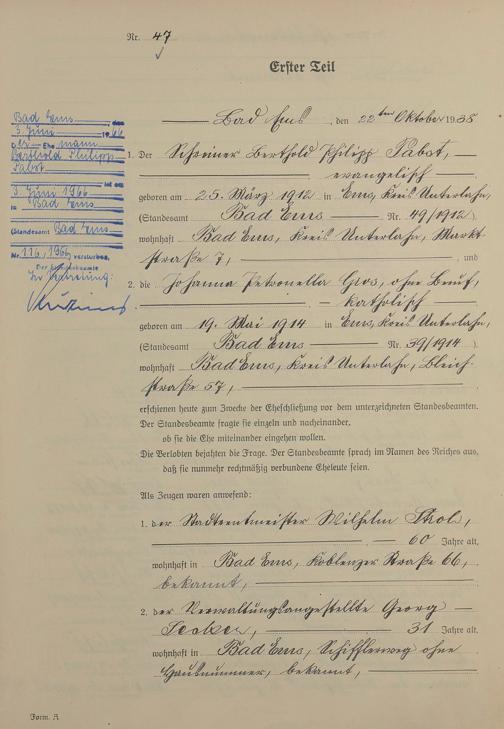 Nr. 47
Erster Teil
Bad Ems, den 22ten Oktober 1938
1. Der Schreiner Berthold Philipp Pabst,
evangelisch
geboren am 25. März 1912 in Ems, Kreis Unterlahn,
(Standesamt Bad Ems Nr. 49/1912)
wohnhaft Bad Ems, Kreis Unterlahn, Markt-
straße 7, und
2. die Johanna Petronella Gros, ohne Beruf,
katholisch
geboren am 19. Mai 1914 in Ems, Kreis Unterlahn,
(Standesamt Bad Ems Nr. 59/1914)
wohnhaft Bad Ems, Kreis Unterlahn, Bleich-
straße 57,
erschienen heute zum Zwecke der Eheschließung vor dem unterzeichneten Standesbeamten.
Der Standesbeamte fragte sie einzeln und nacheinander,
ob sie die Ehe miteinander eingehen wollen.
Die Verlobten bejahten die Frage. Der Standesbeamte sprach im Namen des Reiches aus,
daß sie nunmehr rechtmäßig verbundene Eheleute seien.
Als Zeugen waren anwesend:
1. der Stadtrentmeister Wilhelm
60 Jahre alt,
wohnhaft in Bad Ems, Koblenzer Straße 66,
bekannt,
2. der Verwaltungsangestellte Georg
31 Jahre alt,
wohnhaft in Bad Ems, Schifflerweg ohne
Hausnummer, bekannt,
Form. A
Bad Ems, den
3. Juni 1966
Der Ehemann
Berthold Philipp
Pabst
ist am
3. Juni 1966
in Bad Ems
(Standesamt Bad Ems
Nr. 116/1966) verstorben.
Der Standesbeamte
In Vertretung: